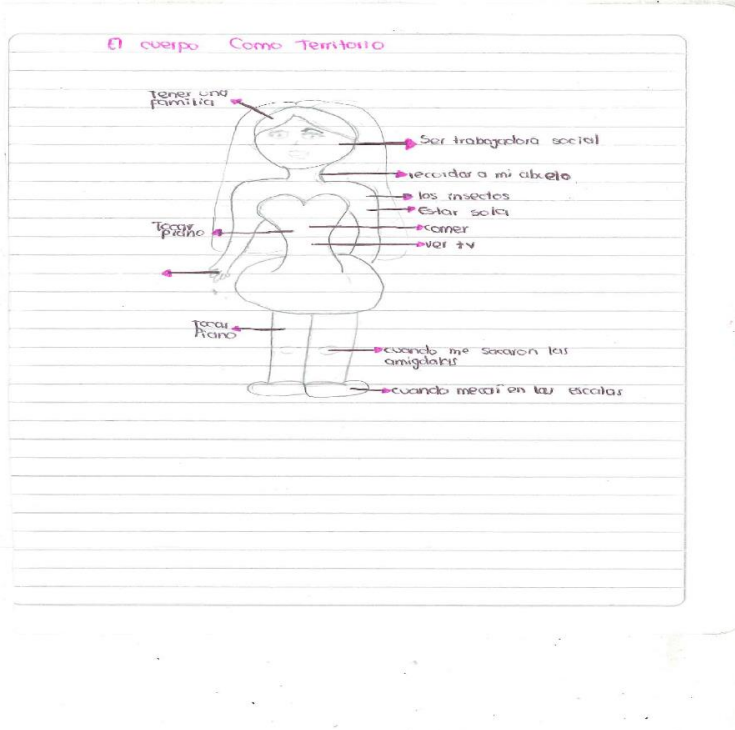 El cuerpo Como Territorio
Tener una
familia
Ser trabajadora social
recordar a mi abuelo
los insectos
Estar sola
Tocar
piano
comer
ver tv
Tocar
Piano
cuando me sacaron las
amigdalas
cuando me caí en las escalas